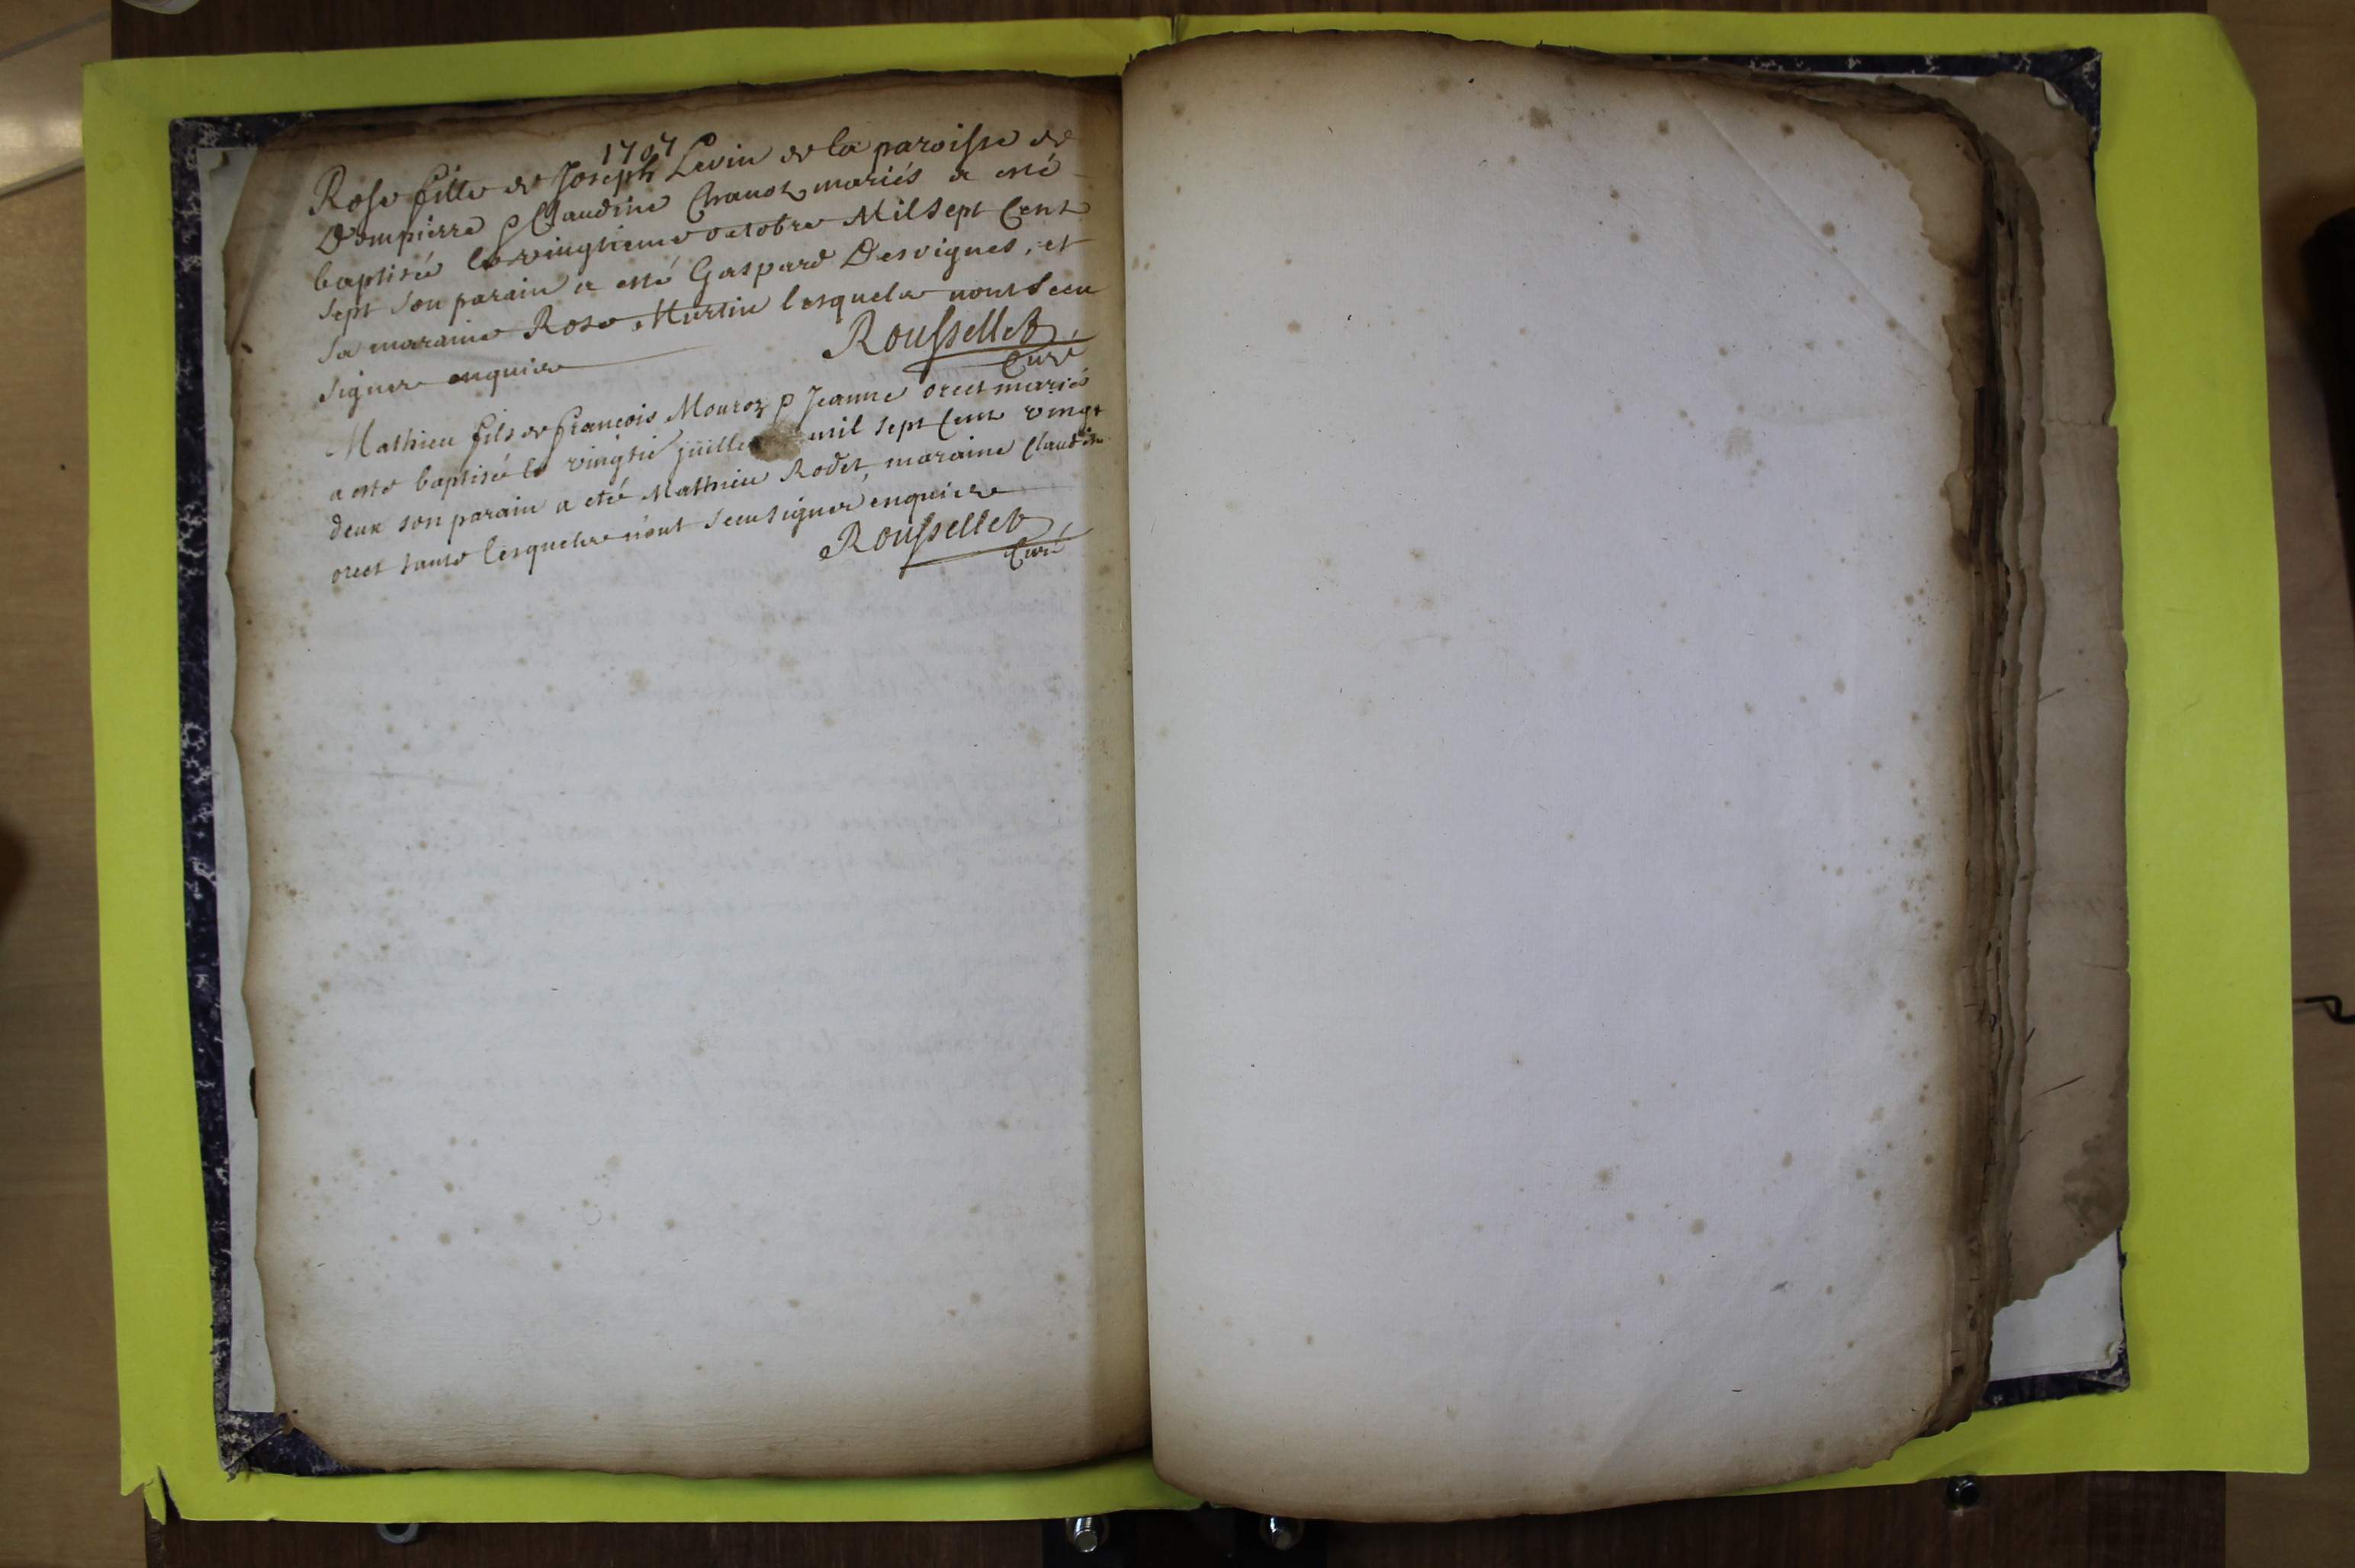 1707
Rose fille de Joseph Levin de la paroisse de
Dompierre & Claudine Chanoz mariés a esté
baptisée le vingtieme octobre Mil sept Cent
sept son parain a esté Gaspard Desvignes, et
sa maraine Rose Martin lesquels nont sceu
signer enquire
Roussellet
Curé
Mathieu fils de françois Mouroz & Jeanne orcet mariés
a esté baptisé le vingtie juillet mil sept Cent vingt
deux son parain a eté Mathieu Rodet, maraine Claudine
orcet tante lesquels n'ont sceu signer enquire
Roussellet
Curé